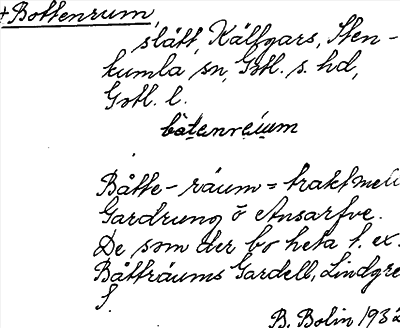 + Bottenrum,
slätt, Källgårs, Sten-
kumla sn, Gotl. s. hd,
Gotl. l.
båtenräum
Båtte-räum = trakt mell
Gardrung o Ansarfve.
De som der bo heta t. ex.
Båtträums Gardell, Lindgre
f.
B. Bolin 1932